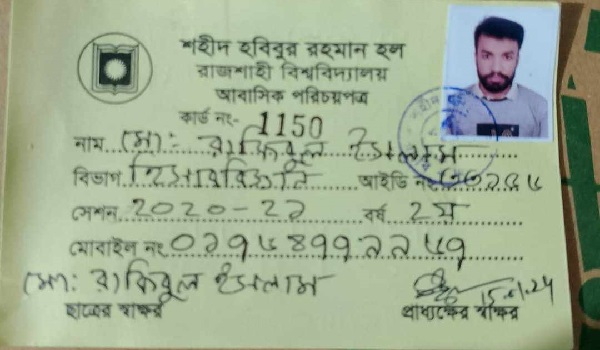 শহীদ হবিবুর রহমান হল
রাজশাহী বিশ্ববিদ্যালয়
আবাসিক পরিচয়পত্র
কার্ড নং- 1150
নাম মো: রাকিবুল ইসলাম
বিভাগ হিসাববিজ্ঞান আইডি নং
সেশন ২০২০-২১ বর্ষ ২য়
মোবাইল নং
মো: রাকিবুল ইসলাম
ছাত্রের স্বাক্ষর প্রাধ্যক্ষের স্বাক্ষর